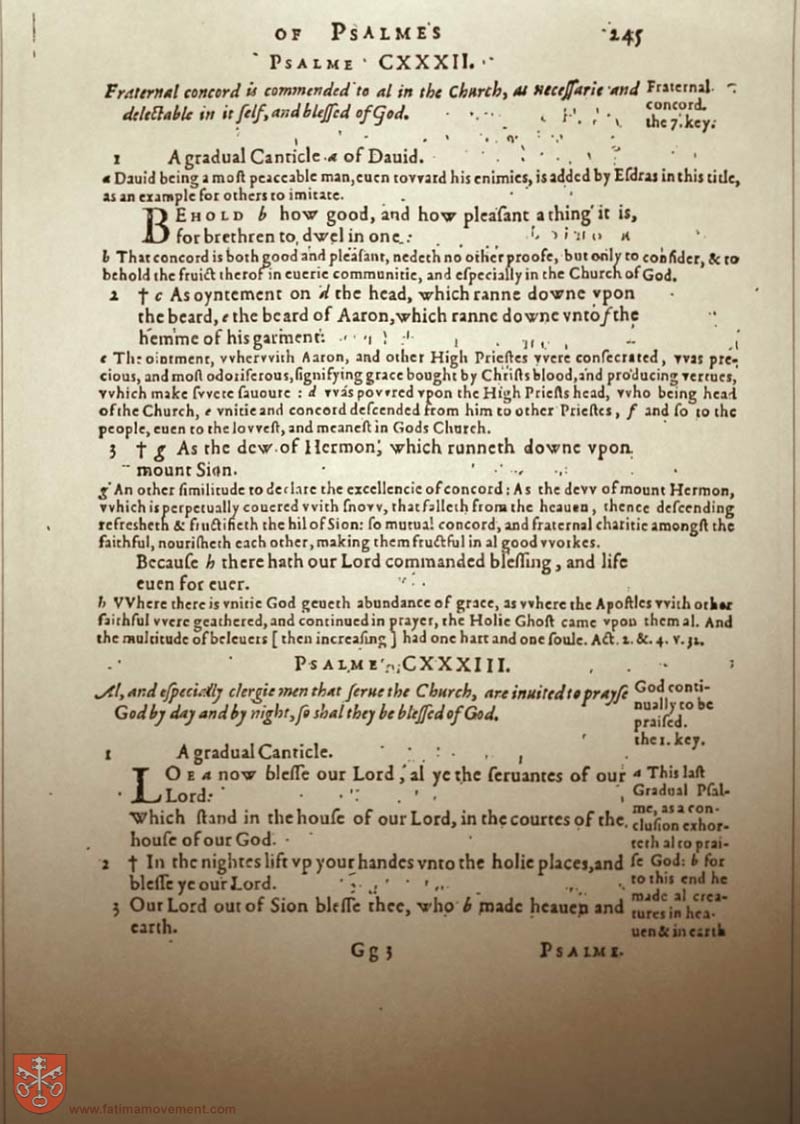 OF PSALMES 245
PSALME CXXXII.
Fraternal concord is commended to al in the Church, as necessarie and
delectable in it self, and blessed of God.
Fraternal
concord.
the 7. key.
1 A gradual Canticle a of Dauid.
a Dauid being a most peaceable man, euen tovvard his enimies, is added by Esdras in this title,
as an example for others to imitate.
BEHOLD b how good, and how pleasant a thing it is,
for brethren to dwel in one:
b That concord is both good and pleasant, nedeth no other proofe, but only to consider, & to
behold the fruict therof in euerie communitie, and especially in the Church of God.
2 † c As oyntement on d the head, which ranne downe vpon
the beard, e the beard of Aaron, which ranne downe vnto f the
hemme of his garment:
c The ointment, vvhervvith Aaron, and other High Priestes vvere consecrated, vvas pre-
cious, and most odoriferous, signifying grace bought by Christs blood, and producing vertues,
vvhich make svvete sauoure : d vvas povvred vpon the High Priests head, vvho being head
of the Church, e vnitie and concord descended from him to other Priestes, f and so to the
people, euen to the lovvest, and meanest in Gods Church.
3 † g As the dew of Hermon, which runneth downe vpon
mount Sion.
g An other similitude to declare the excellencie of concord: As the devv of mount Hermon,
vvhich is perpetually couered vvith snovv, that falleth from the heauen, thence descending
refresheth & fructifieth the hil of Sion: so mutual concord, and fraternal charitie amongst the
faithful, nourisheth each other, making them fructful in al good vvorkes.
Because h there hath our Lord commanded blessing, and life
euen for euer.
h VVhere there is vnitie God geueth abundance of grace, as vvhere the Apostles vvith other
faithful vvere geathered, and continued in prayer, the Holie Ghost came vpon them al. And
the multitude of beleuers [ then increasing ] had one hart and one soule. Act. 2. &. 4. v. 32.
PSALME CXXXIII.
Al, and especially clergie men that serue the Church, are inuited to prayse
God by day and by night, so shal they be blessed of God.
God conti-
nually to be
praised.
the 1. key.
1 A gradual Canticle.
LOE a now blesse our Lord, al ye the seruantes of our
Lord:
Which stand in the house of our Lord, in the courtes of the
house of our God.
2 † In the nightes lift vp your handes vnto the holie places, and
blesse ye our Lord.
3 Our Lord out of Sion blesse thee, who b made heauen and
earth.
a This last
Gradual Psal-
me, as a con-
clusion exhor-
teth al to prai-
se God: b for
to this end he
made al crea-
tures in hea-
uen & in earth
Gg 3 PSALME.
www.fatimamovement.com